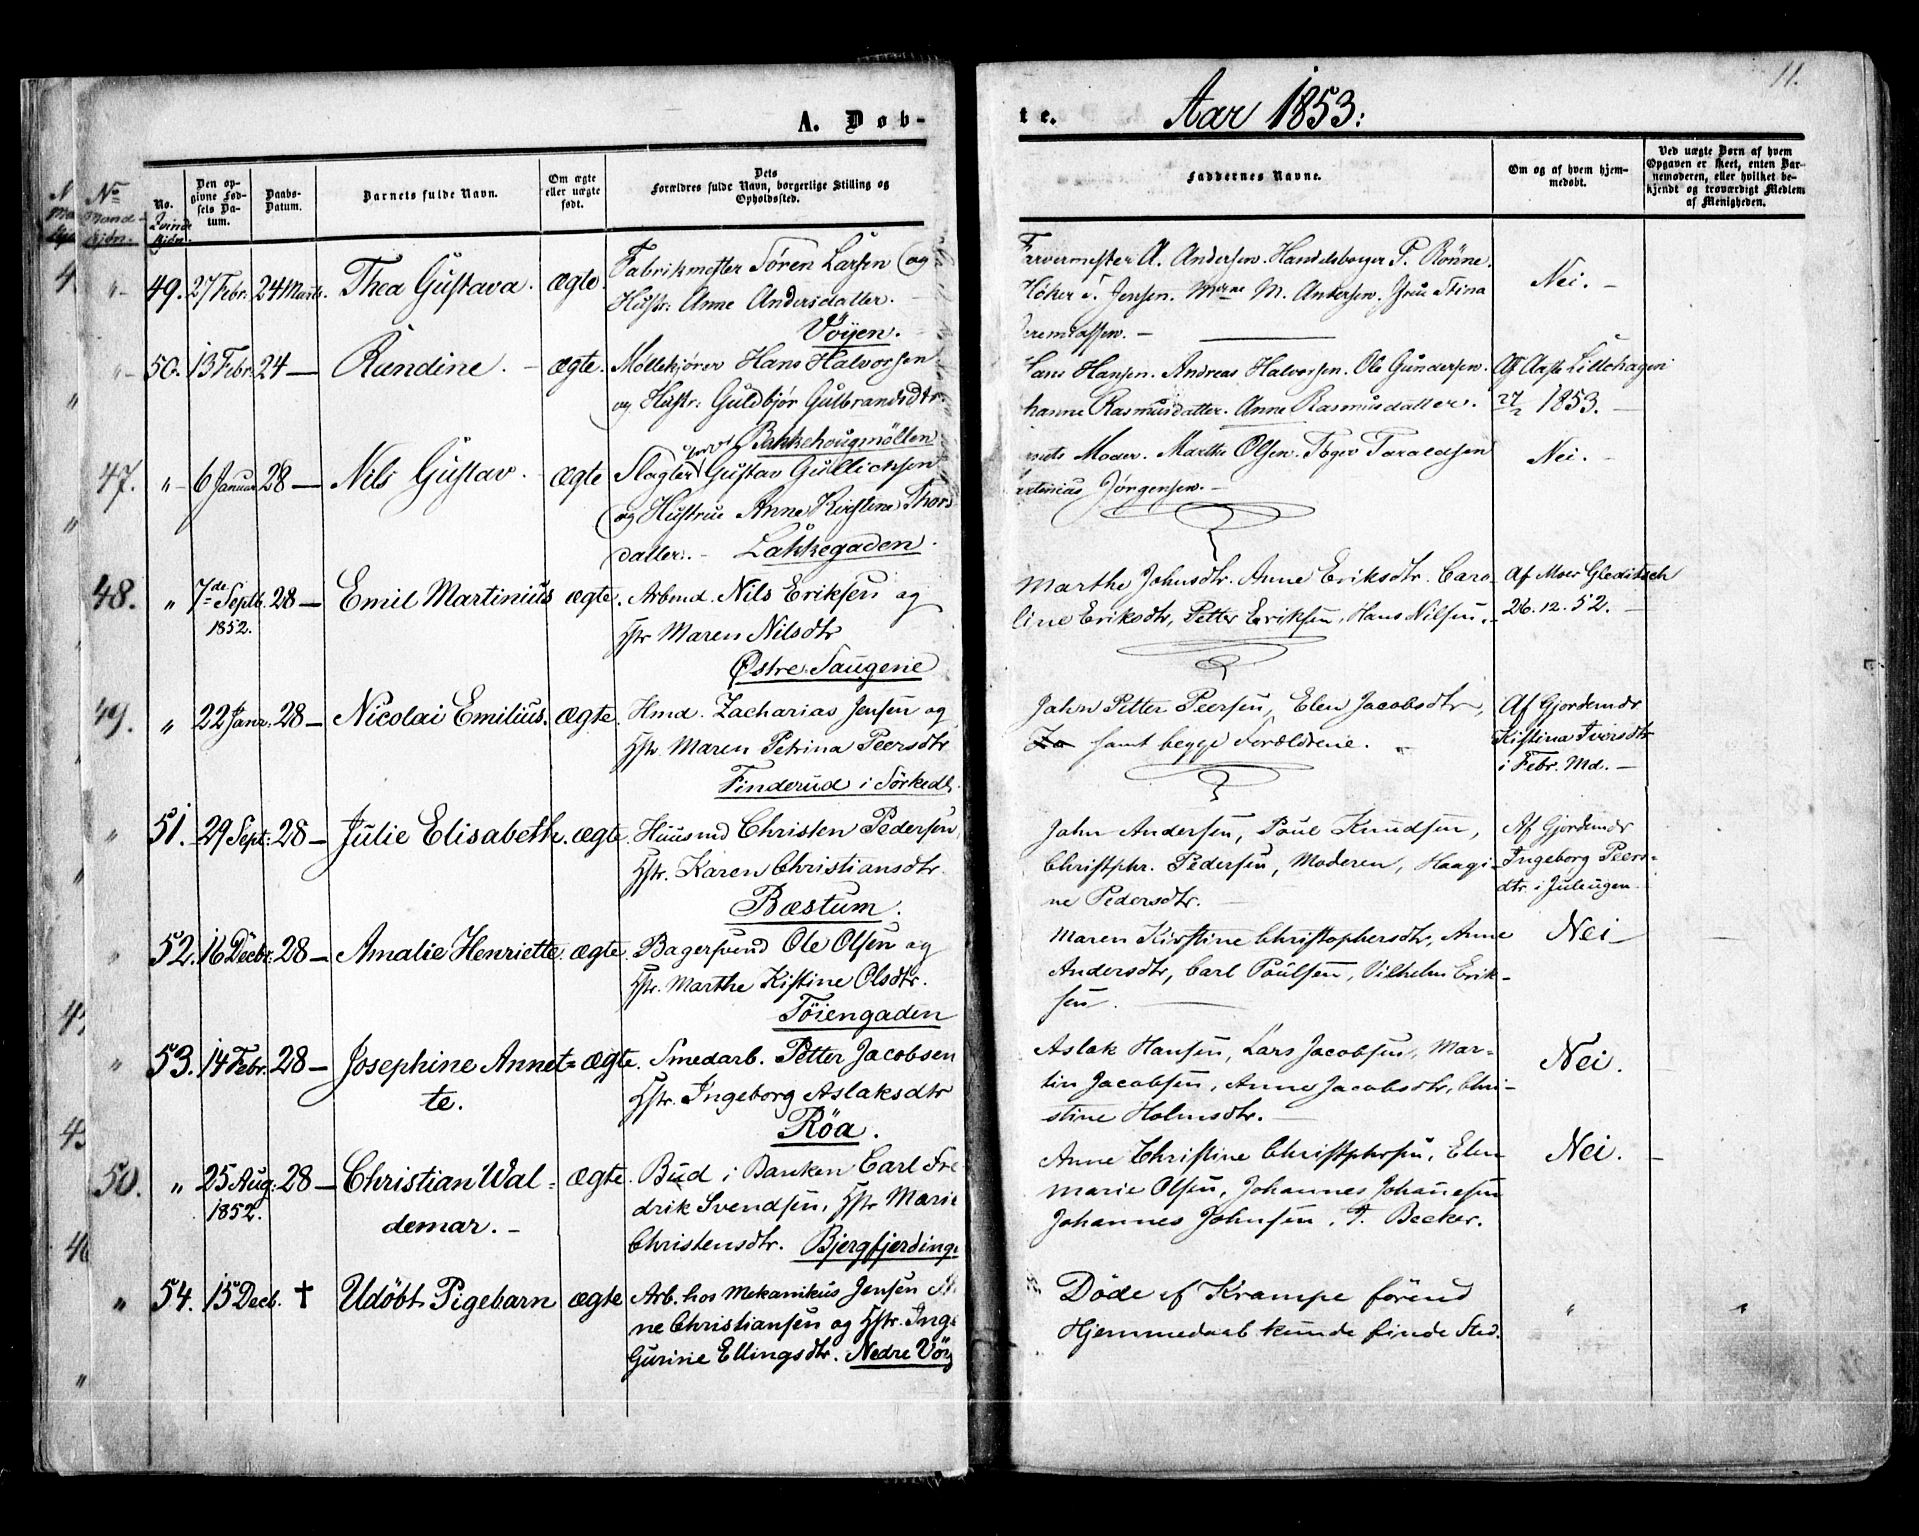 11.
A. Døb-
te. Aar 1853:
No. Mandkjön.
No. Qvindekjön.
Den opgivne Fødsels Datum.
Daabs-Datum.
Barnets fulde Navn.
Om ægte eller uægte født.
Dets Forældres fulde Navn, borgerlige Stilling og Opholdssted.
Faddernes Navne.
Om og af hvem hjemmedøbt.
Ved uægte Børn af hvem Opgaven er skeet, enten Barnemoderen, eller hvilket bekjendt og troværdigt Medlem af Menigheden.
"- 49. 27 Febr. 24 Marts. Thea Gustava. ægte. Fabrikmester Sören Larsen og
Hustr: Anne Andersdatter.
Vöyen.
A. Andersen. P. Rönne.
Jensen. M. Andersen.
Nei. -
"- 50. 13 Febr. 24 — Rundine. - ægte. Möllekjörer Hans Halvorsen
og Hustr: Guldbjör Gulbrandsdtr.
Bakkehougmöllen
Hansen. Andreas Halvorsen. Ole Gundersen.
Rasmusdatter. Anne Rasmusdatter.
Af Aase Lillehagen
27/2 1853. -
47. "- 6 Januar 28 — Nils Gustav. - ægte Slagter Gustav Gullichsen
og Hustrue Anne Kirstine Thors
datter. - Lakkegaden.
Moder. Marthe Olsen. Taraldsen
Jörgensen. -
Nei. -
48. " 7de Septb. 1852. 28 — Emil Martinius ægte. Arbmd. Nils Eriksen og
Hstr Maren Nilsdtr
Østre Saugene
Marthe Johnsdtr. Anne Eriksdtr. Caro-
line Eriksdtr, Petter Eriksen, Hans Nilsen.
Af Moer Gleditsch
26. 12. 52. -
49. " 22 Janr. 28 — Nicolai Emilius. ægte Hmd. Zacharias Jensen og
Hstr. Maren Petrina Peersdtr
Finderud i Sörkedl.
John Petter Peersen, Elen Jacobsdtr,
samt begge Forældrene.
Af Gjordemdr
Kistina Iversdtr
i Febr. Md. -
" 51. 29 Sept: 28 — Julie Elisabeth. ægte Huusmd Christen Pedersen,
Hstr. Karen Christiansdtr.
Bæstum.
John Andersen, Poul Knudsen,
Christphr. Pedersen, Moderen, Haagi-
ne Pedersdtr.
Af Gjordemdr
Ingeborg Peers-
dtr. i Juleugen.
" 52. 16 Decbr. 28 — Amalie Henriette ægte. Bagersvend Ole Olsen og
Hstr. Marthe Kistine Olsdtr.
Töiengaden
Maren Kirstine Christophersdtr, Anne
Andersdtr, Carl Poulsen, Vilhelm Erik-
sen.
Nei -
" 53. 14 Febr. 28 — Josephine Annet= ægte. Smedarb. Petter Jacobsen
te. Hstr. Ingeborg Aslaksdtr
Röa.
Aslak Hansen, Lars Jacobsen, Mar-
tin Jacobsen, Anne Jacobsdtr, Chri-
stine Holmsdtr. -
Nei.
50. " 25 Aug: 1852. 28 — Christian Wal= ægte. Bud i Banken Carl Fre
demar. - drik Svendsen, Hstr Marie
Christensdtr. Bjergfjerdingen
Anne Christine Christphersen, Elen
Marie Olsen, Johannes Johanesen
Johannes Johnsen, T. Becker.
Nei. -
" 54. 15 Decb. † Udöbt Pigebarn ægte Arb. hos Mekanikus Jensen
ne Christiansen og Hstr. Inge
Gurine Ellingsdtr. Nedre Vöy
Döde af Krampe förend
Hjemmedaab kunde finde Sted.
"
"